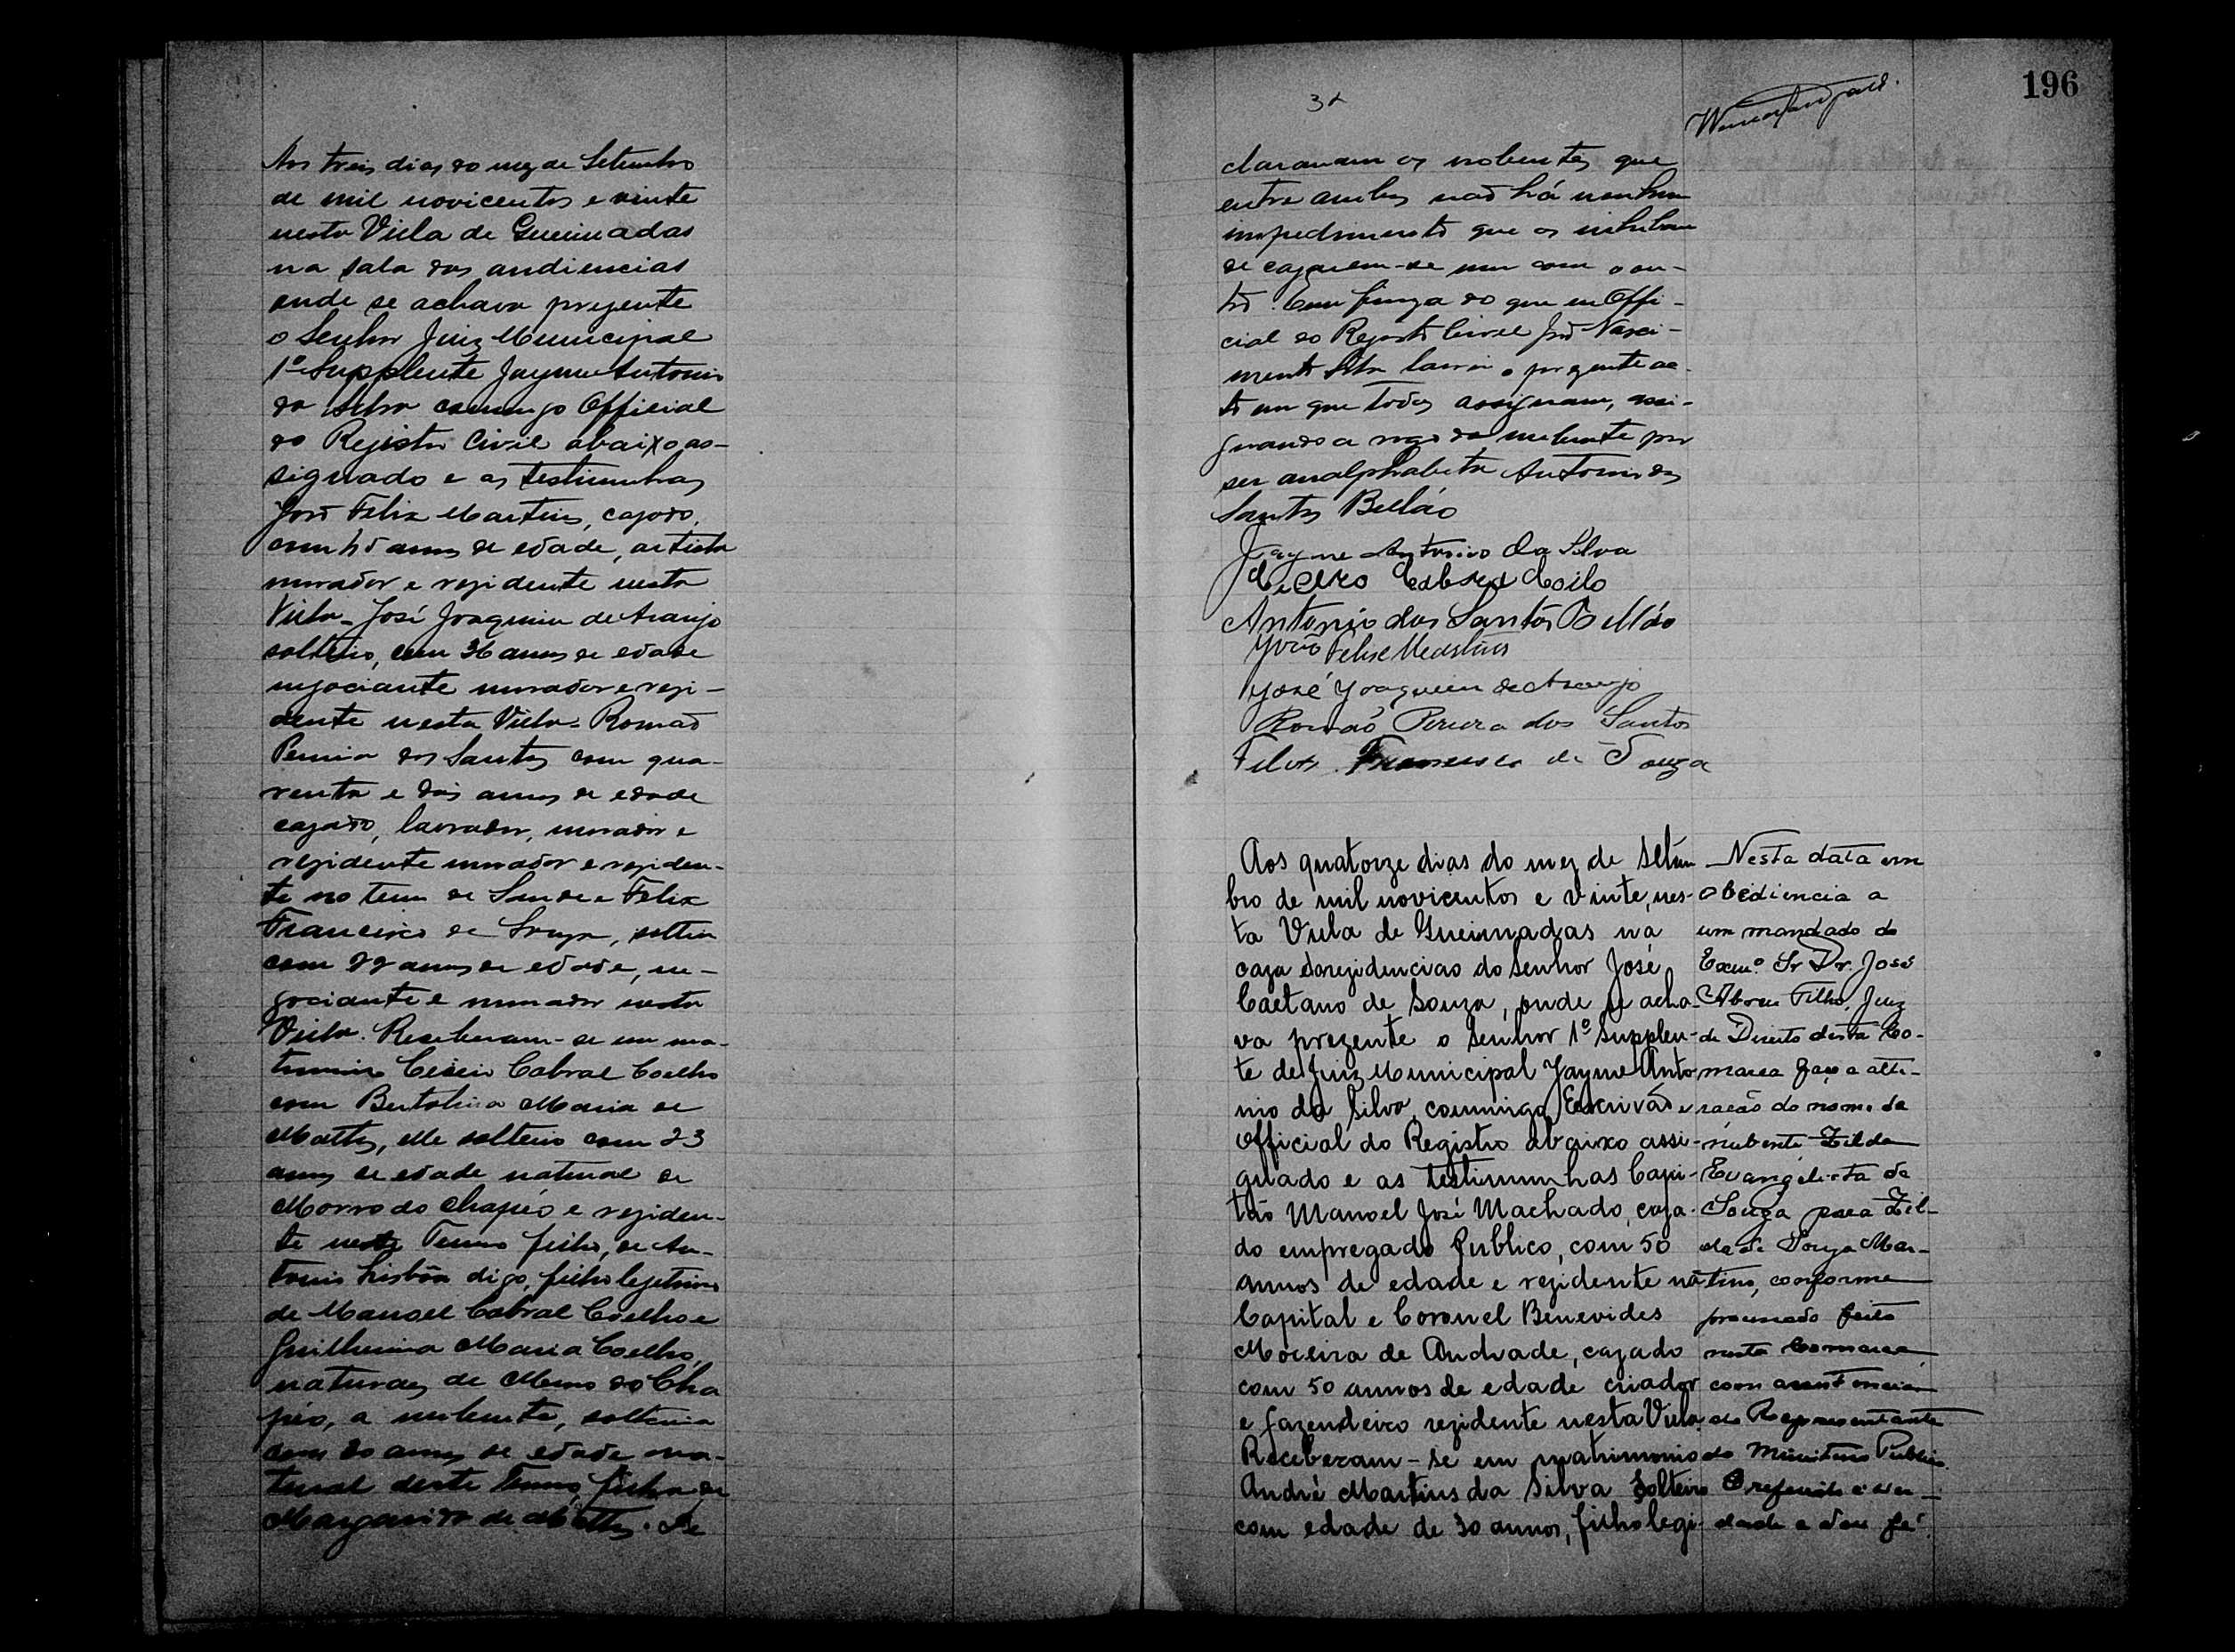 Aos treis dias do mez de Setembro
de mil novicentos e vinte
nesta Villa de Queimadas
na sala das audiencias
onde se achava prezente
o Senhor Juiz Municipal
1º Supplente Jayme Antonio
da Silva commigo Official
do Registro Civil abaixo as-
signado e as testimunhas
João Felix Martins, cazado,
com annos de edade, artista
morador e rezidente nesta
Villa - José Joaquim de Araujo
solteiro, com 36 annos de edade
negociante morador e rezi-
dente nesta Villa - Romaõ
Pereira dos Santos com qua-
renta e dois annos de edade
cazado, lavrador, morador e
rezidente morador e reziden-
te no termo de e Felix
Francisco de Souza, solteiro
com annos de edade, ne-
gociante e morador nesta
Villa. Receberam-se em ma-
trimonio Cicero Cabral Coelho
com Bertolina Maria de
Mattos, elle solteiro com 23
annos de edade natural de
Morro do Chapéo e reziden-
te neste Termo filho, de An-
tonio Lisbôa digo, filho legitimo
de Manoel Cabral Coelho e
Guilhermina Maria Coelho,
naturaes de Morro do Cha
péo, a nubente, solteira
com 20 annos de edade na-
tural deste Termo, filha de
Margarida de Mattos. De
196
clararam os nubentes que
entre ambos naõ há nenhum
impedimento que os inhibam
de cazarem-se um com o ou-
tro. Em firmeza do que eu Offi-
cial do Registro Civil João Nasci-
mento lavrei o prezente ac-
to em que todos assignam, assi-
gnando a rogo da nubente por
ser analphabeta Antonio dos
Santos Bellão
Jayme Antonio da Silva
Cicero Cabral Coelho
Antonio dos Santos Bellão
João Felix Martins
José Joaquim de Araujo
Romaõ Pereira dos Santos
Felix Francisco de Souza
Aos quatorze dias do mez de Setem
bro de mil novicentos e vinte, nes-
ta Villa de Queimadas na
caza do Senhor José
Caetano de Souza, onde se acha-
va prezente o Senhor 1º Supplen-
te de Juiz Municipal Jayme Anto
nio da Silva, commigo Escrivão e
Official do Registro abaixo assi-
gnado e as testimunhas Capi-
tão Manoel José Machado, caza-
do empregado Publico, com 50
annos de edade e rezidente na
Capital e Coronel Benevides
Moreira de Andrade, cazado
com 50 annos de edade criador
e fazendeiro rezidente nesta Villa.
Receberam-se em matrimonio
André Martins da Silva Solteiro
com edade de 30 annos, filho legi-
Nesta data em
obediencia a
um mandado do
Exmº Sr Dr. José
Abreu Filho, Juiz
de Direito desta Co-
marca faço a alte-
ração do nome da
nubente Zilda
Evangelista de
Souza para Zil-
da de Souza Mar-
tins, conforme
processado feito
nesta Comarca,
com
do Representante
do Ministerio Publico.
O referido é ver-
dade e dou fé.